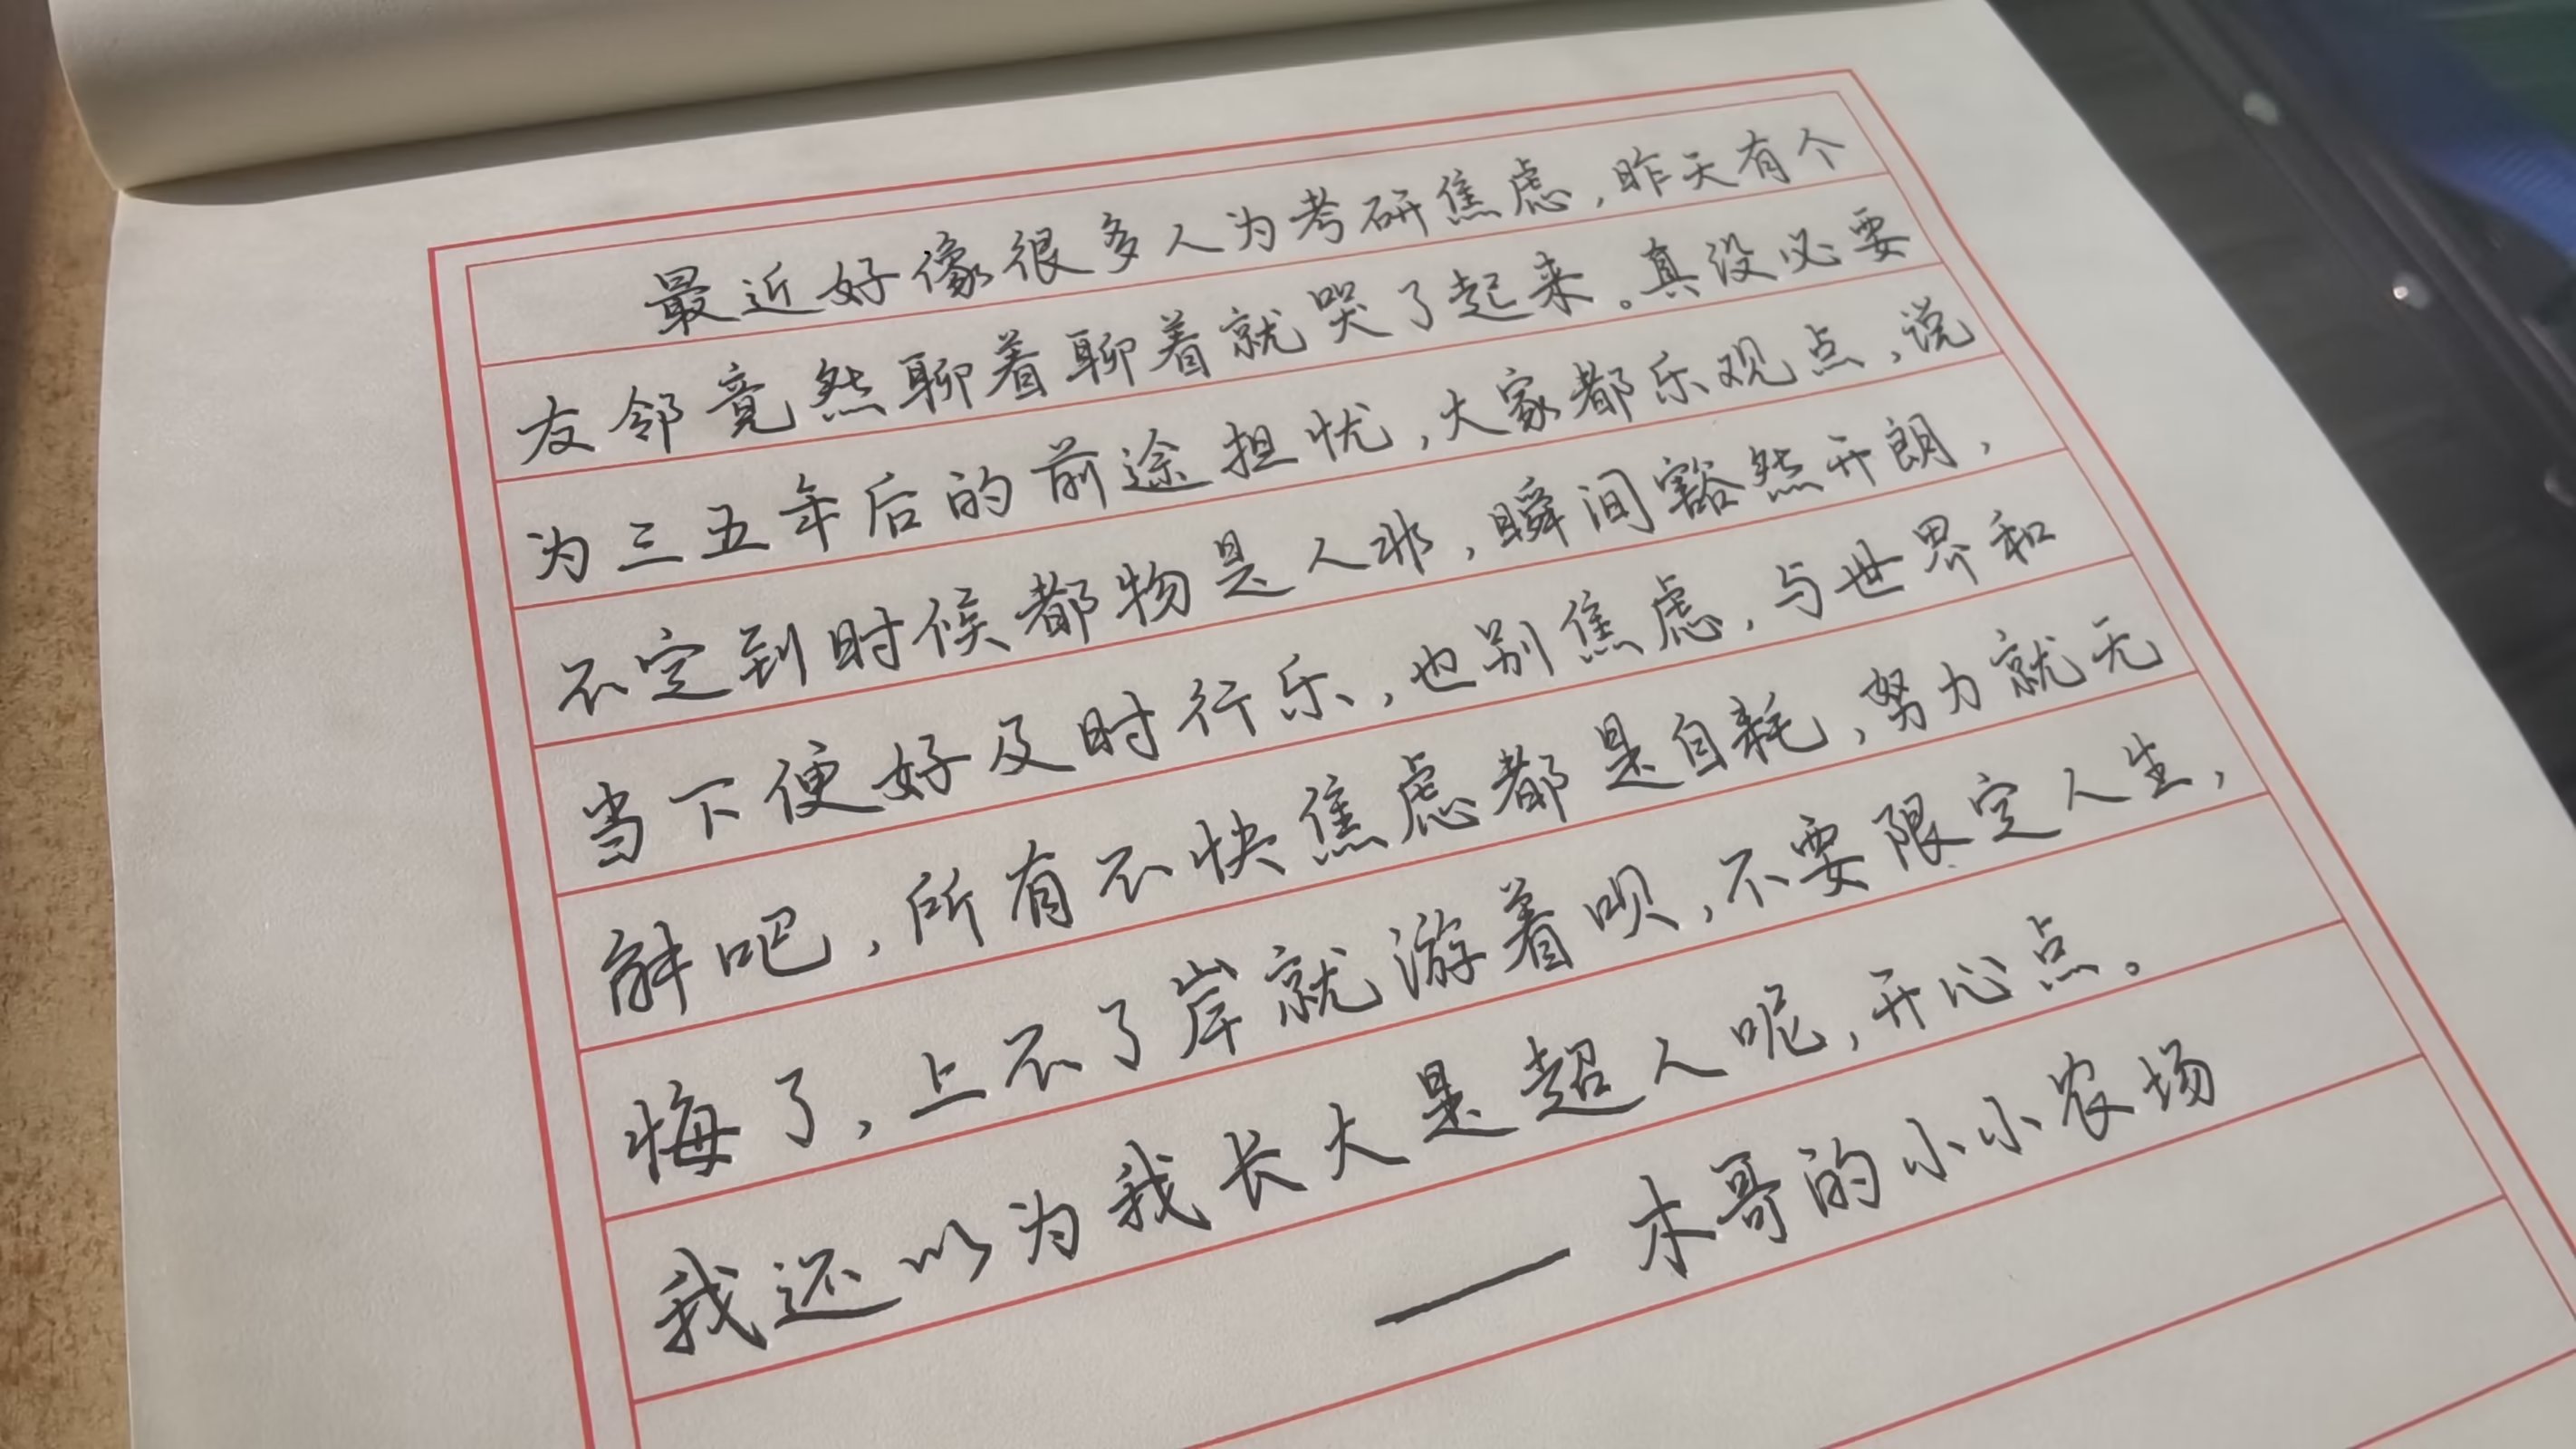 最近好像很多人为考研焦虑，昨天有个
友邻竟然聊着聊着就哭了起来。真没必要
为三五年后的前途担忧，大家都乐观点，说
不定到时候都物是人非，瞬间豁然开朗，
当下便好及时行乐，也别焦虑，与世界和
解吧，所有不快焦虑都是自耗，努力就无
悔了，上不了岸就游着呗，不要限定人生，
我还以为我长大是超人呢，开心点。
—— 木哥的小小农场